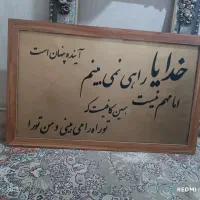 خدایا راهی نمی بینم
آینده پنهان است
اما مهم نیست
همین کافیست که
تو راه را می بینی و من تو را
REDMI